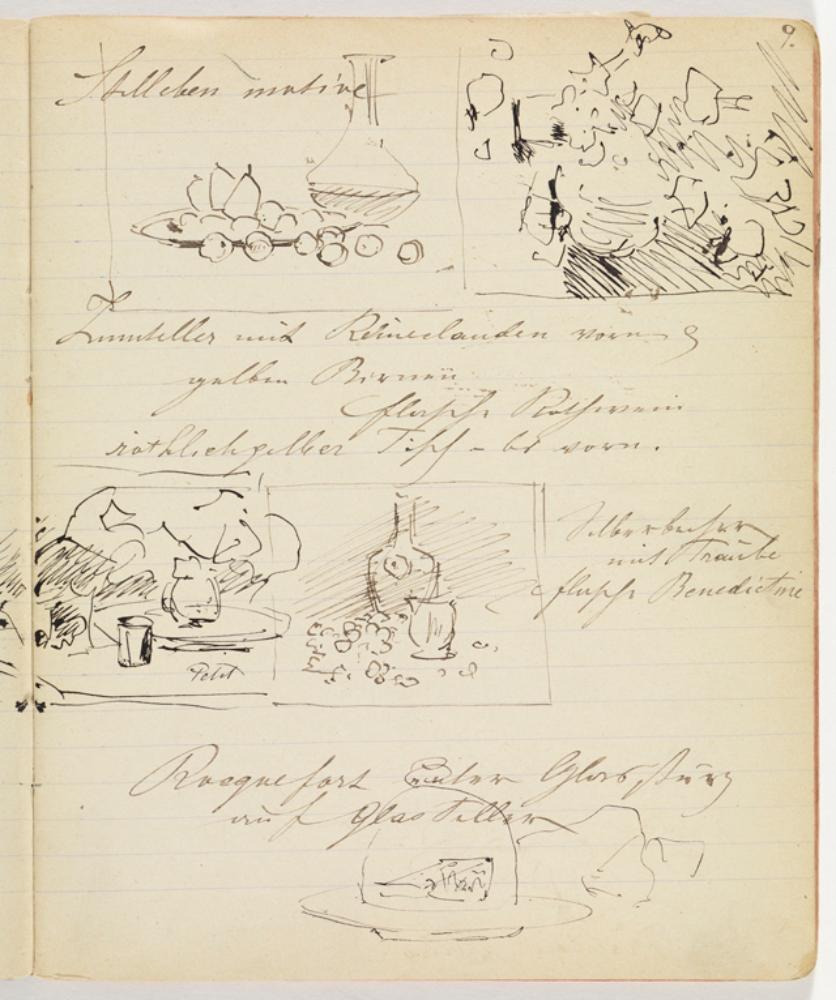 9.
Stilleben motive
Zinnteller mit Reineclauden vorn
gelben Birnen
flasche Rothwein
röthlichgelber Tisch - bl vorn.
Silberbecher
mit Traube
flasche Benedictine
Petit
Rocquefort unter Glassturz
auf Glasteller